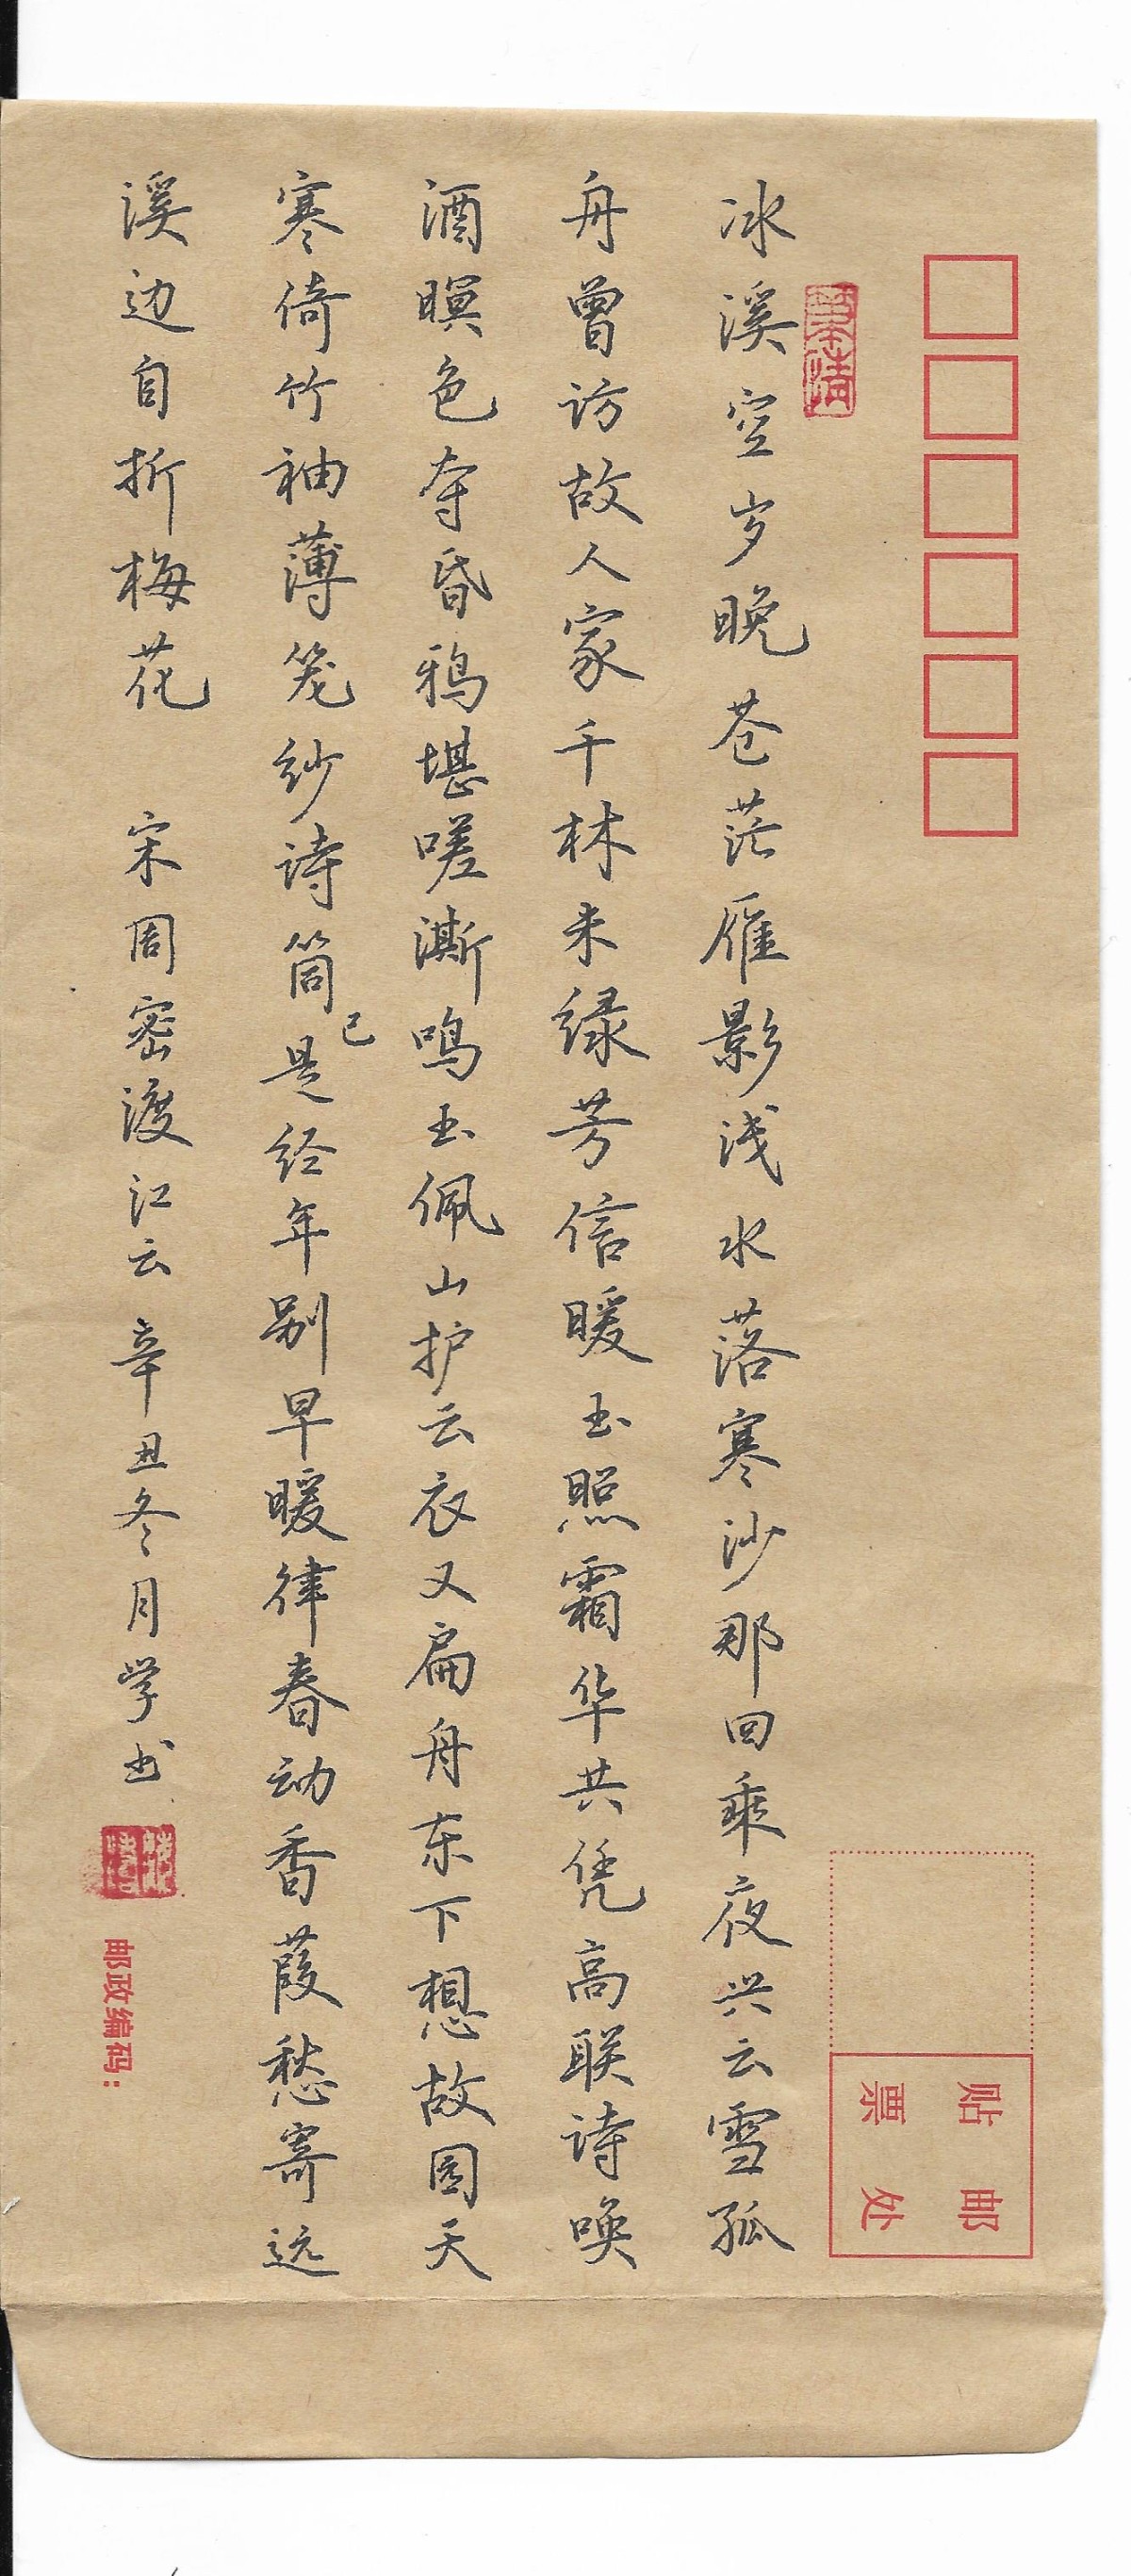 冰溪空岁晚苍茫雁影浅水落寒沙那回乘夜兴云雪孤
舟曾访故人家千林未绿芳信暖玉照霜华共凭高联诗唤
酒暝色夺昏鸦堪嗟澌鸣玉佩山护云衣又扁舟东下想故园天
寒倚竹袖薄笼纱诗筒已是经年别早暖律春动香葭愁寄远
溪边自折梅花 宋周密渡江云 辛丑冬月学书
邮政编码:
贴邮
票处